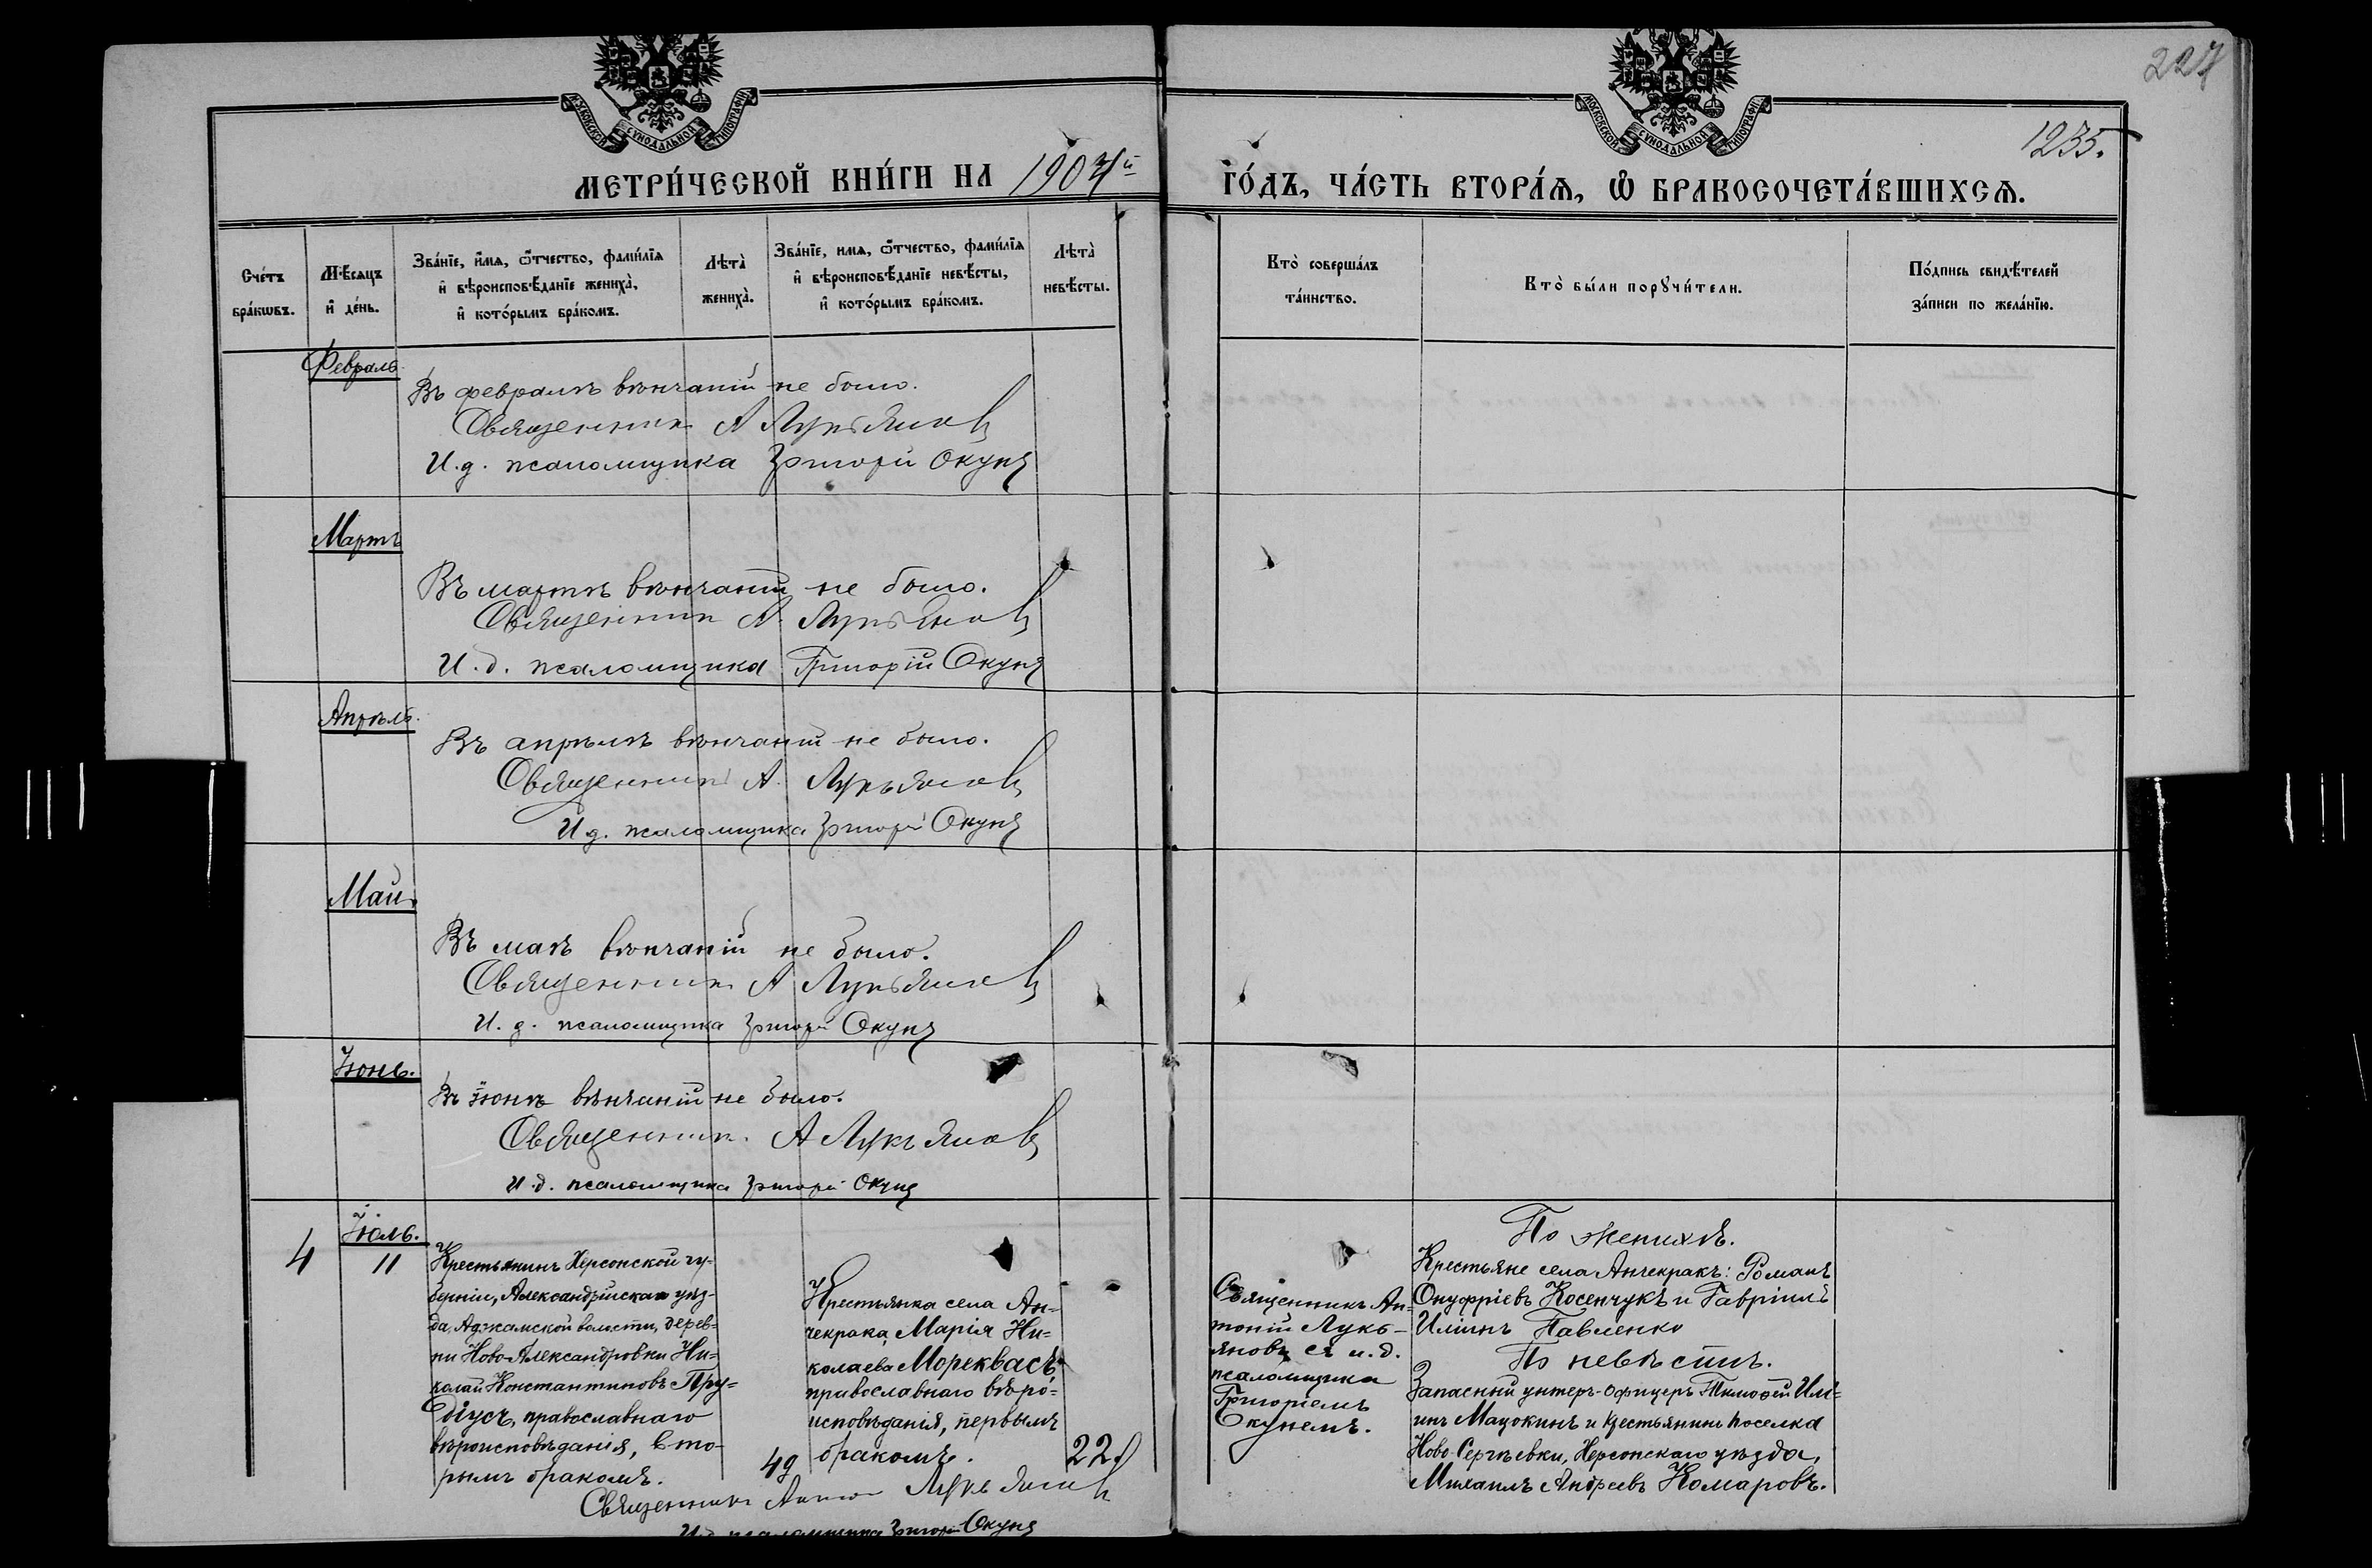 227
1235.
МОСКОВСКОЙ СѴНОДАЛЬНОЙ ТИПОГРАФІИ
МОСКОВСКОЙ СѴНОДАЛЬНОЙ ТИПОГРАФІИ
МЕТРИ́ЧЕСКОЙ КНИ́ГИ НА 1904й
ГО́ДЪ, ЧА́СТЬ ВТОРА́Ѧ, Ѽ БРАКОСОЧЕТА́ВШИХСѦ.
Сче́тъ
бра́кѡвъ.
Мѣ́сяцъ
и҆ де́нь.
Зва́нїе, и҆́мѧ, ѻ҆́тчество, фами́лїѧ
и҆ вѣроисповѣ́данїе жениха̀,
и҆ кото́рымъ бра́комъ.
Лѣта̀
жениха̀.
Зва́нїе, и҆́мѧ, ѻ҆́тчество, фами́лїѧ
и҆ вѣроисповѣ́данїе невѣ́сты,
и҆ кото́рымъ бра́комъ.
Лѣта̀
невѣ́сты.
Кто̀ соверша́лъ
та́инство.
Кто̀ бы́ли порꙋчи́тели.
По́дпись свидѣ́телей
за́писи по жела́нїю.
Февраль.
Въ февралѣ вѣнчаній не было.
Священникъ А Лукьяновъ
И.д. псаломщика Григорій Окунь
Мартъ
Въ мартѣ вѣнчаній не было.
Священникъ А. Лукьяновъ
И.д. псаломщика Григорій Окунь
Апрѣль.
Въ апрѣлѣ вѣнчаній не было.
Священникъ А. Лукьяновъ
И д. псаломщика Григорій Окунь
Май.
Въ маѣ вѣнчаній не было.
Священникъ А Лукьяновъ
И. д. псаломщика Григорій Окунь
Іюнь.
Въ іюнѣ вѣнчаній не было.
Священникъ. А Лукьяновъ
И.д. псаломщика Григорій Окунь
Іюль.
4
11
Крестьянинъ Херсонской гу-
берніи, Александрійскаго уѣз-
да, Аджамской волости, дерев-
ни Ново-Александровки Ни-
колай Константиновъ Пру-
діусъ, православнаго
вѣроисповѣданія, вто-
рымъ бракомъ.
49
Крестьянка села Ан-
чекрака, Марія Ни-
колаева Мореквасъ
православнаго вѣро-
исповѣданія, первымъ
бракомъ.
22
Священникъ Антоній Лукьяновъ
И.д. псаломщика Григорій Окунь
Священникъ Ан-
тоній Лукь-
яновъ съ и.д.
псаломщика
Григоріемъ
Окунемъ.
По женихѣ.
Крестьяне села Анчекракъ: Романъ
Онуфріевъ Косенчукъ и Гавріилъ
Иліинъ Павленко
По невѣстѣ.
Запасный унтеръ-офицеръ Тимоѳей Илі-
инъ Мацокинъ и крестьянинъ поселка
Ново-Сергѣевки, Херсонскаго уѣзда,
Михаилъ Андреевъ Комаровъ.